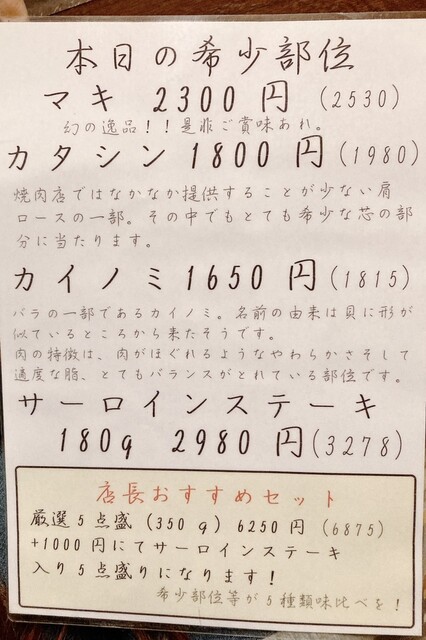 本日の希少部位
マキ 2300円 (2530)
幻の逸品！！是非ご賞味あれ。
カタシン 1800円 (1980)
焼肉店ではなかなか提供することが少ない肩
ロースの一部。その中でもとても希少な芯の部
分に当たります。
カイノミ 1650円 (1815)
バラの一部であるカイノミ。名前の由来は貝に形が
似ているところから来たそうです。
肉の特徴は、肉がほぐれるようなやわらかさそして
適度な脂、とてもバランスがとれている部位です。
サーロインステーキ
180g 2980円 (3278)
店長おすすめセット
厳選5点盛 (350g) 6250円 (6875)
+1000円にてサーロインステーキ
入り5点盛りになります！
希少部位等が5種類味比べを！